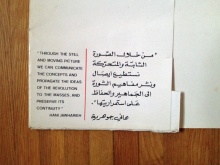 "THROUGH THE STILL
AND MOVING PICTURE
WE CAN COMMUNICATE
THE CONCEPTS AND
PROPAGATE THE IDEAS
OF THE REVOLUTION
TO THE MASSES, AND
PRESERVE ITS
CONTINUITY."
HANI JAWHARIEH
"من خلال الصورة
الثابتة والمتحركة
نستطيع ايصال
ونشر مفاهيم الثورة
الى الجماهير والحفاظ
على استمراريتها."
هاني جوهرية